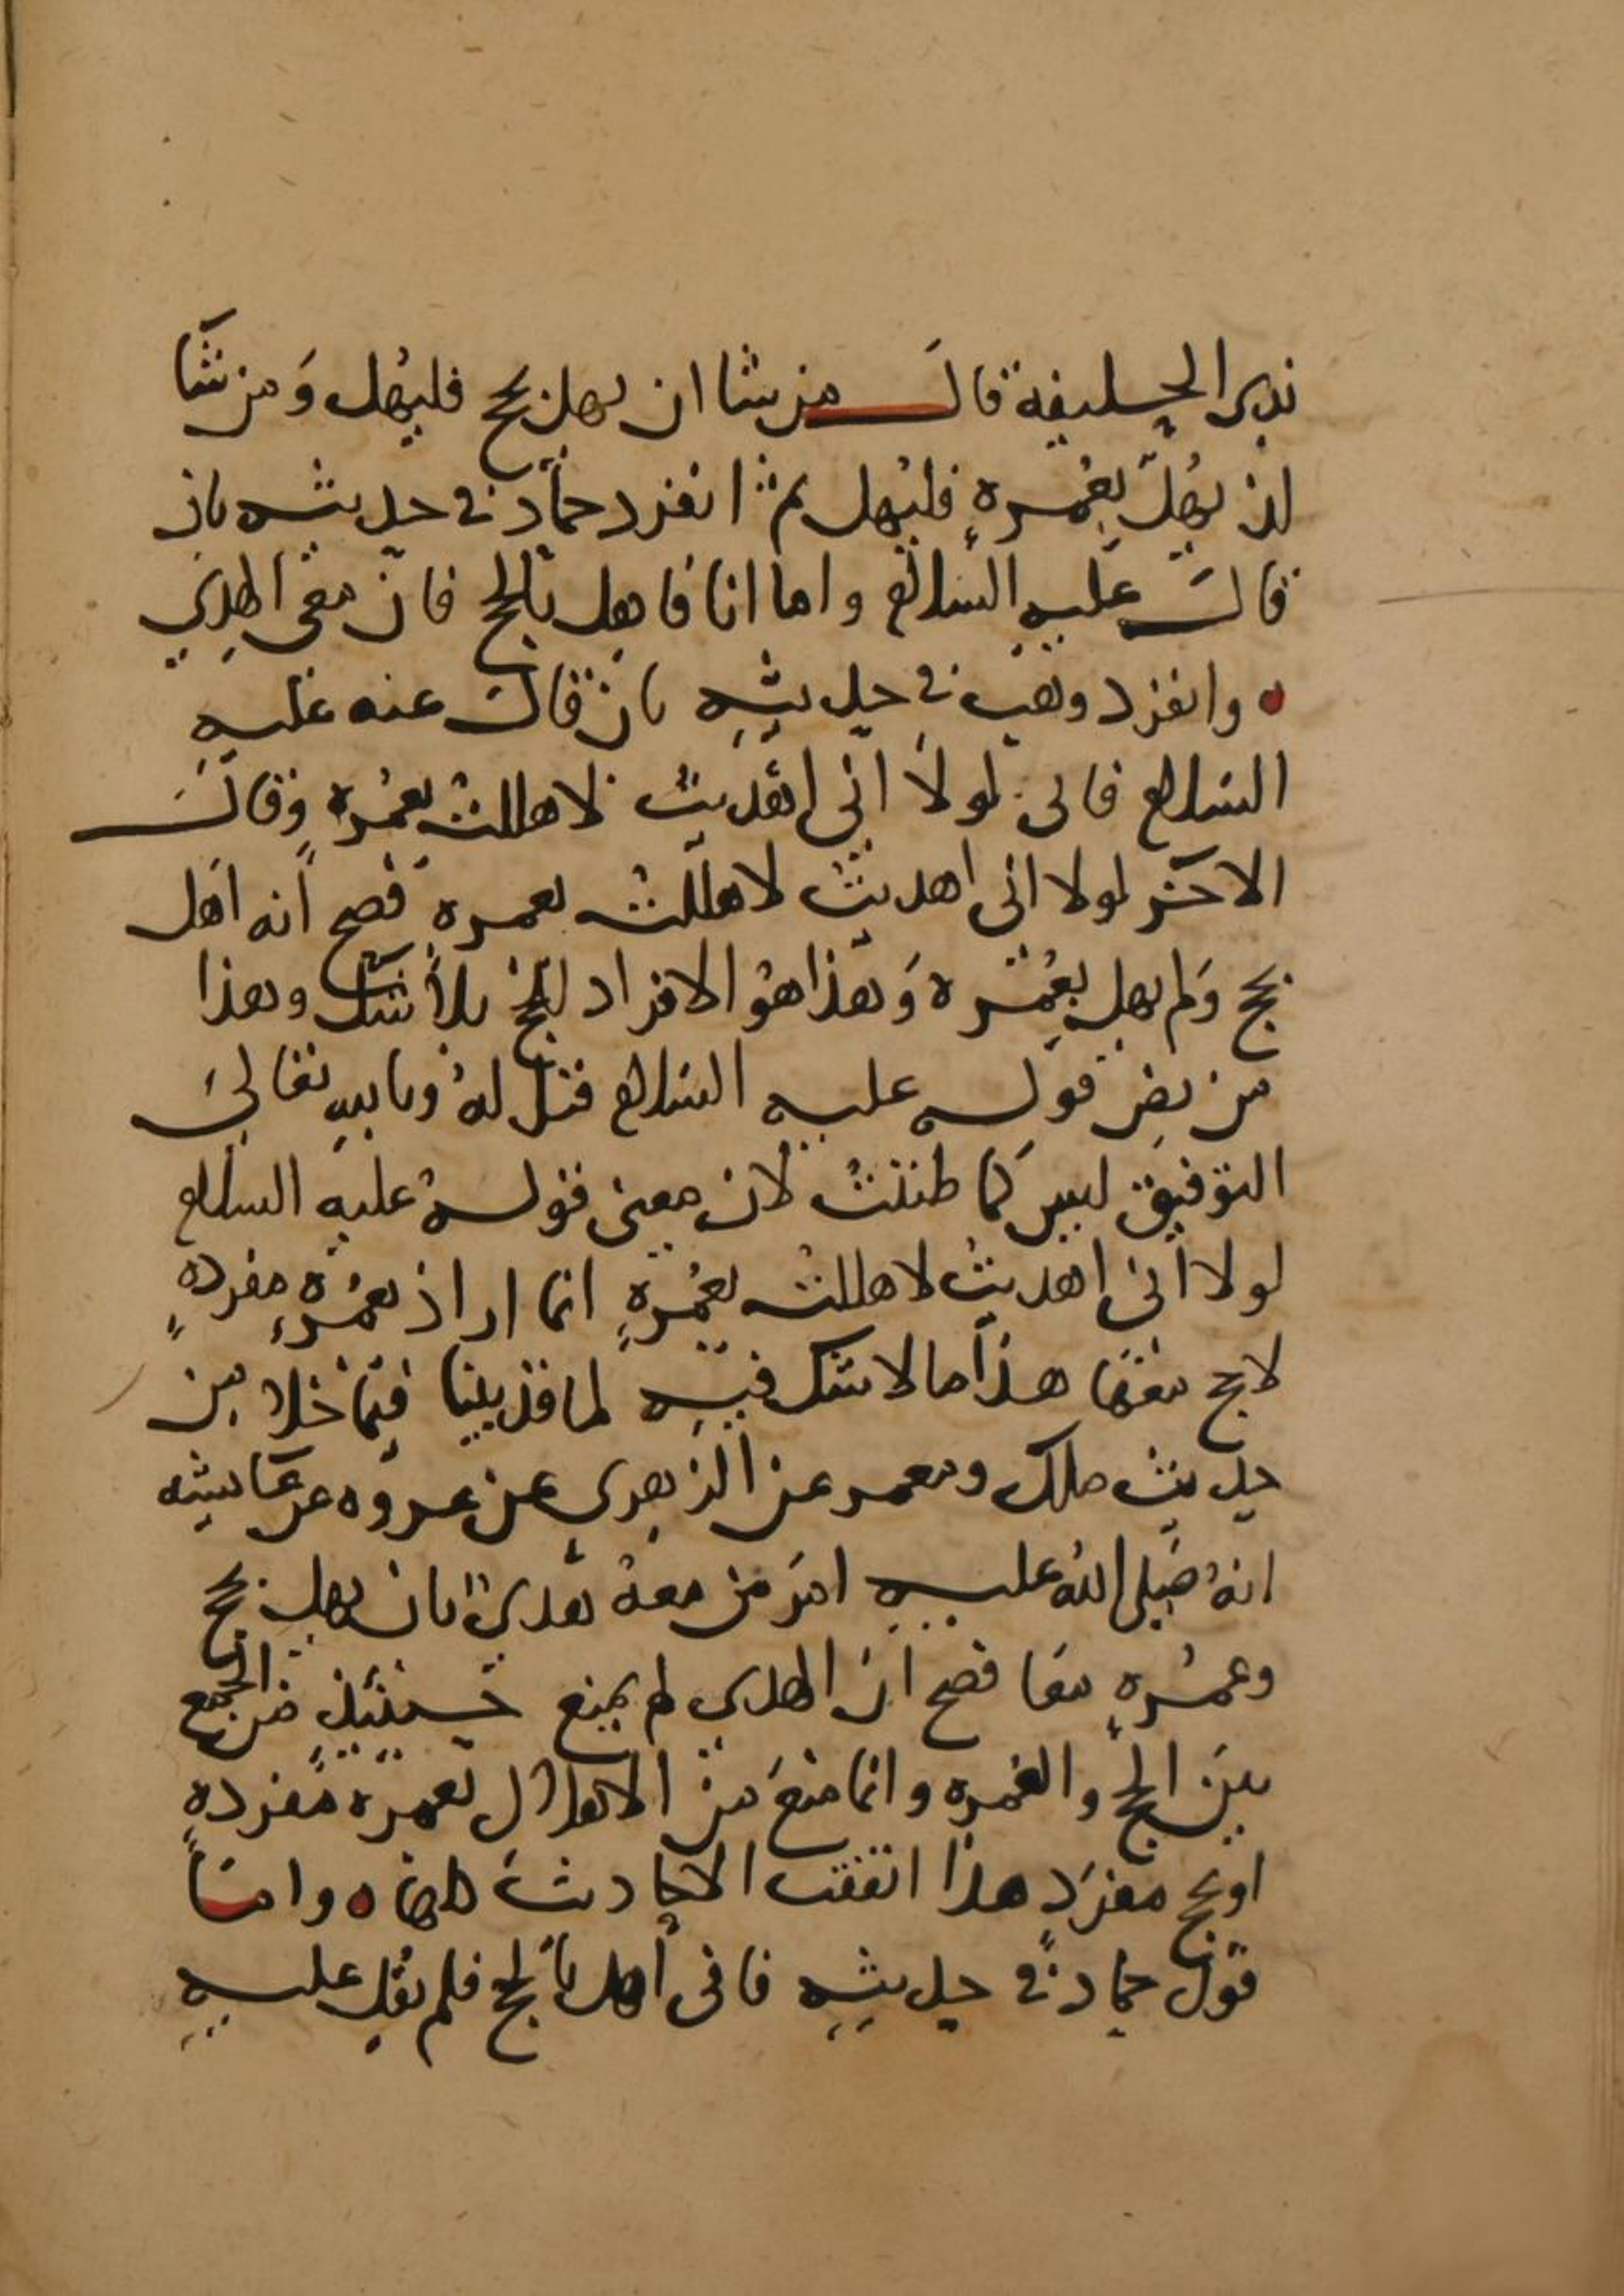 بذى الحليفة قال من شا ان يهل بحج فليهل ومن شا
ان يهل بعمرة فليهل ثم انفرد حماد في حديثه بان
قال عليه السلام واما انا فاهل بالحج فان معي الهدي
وانفرد وهيب في حديثه بان قال عنه عليه
السلام فانى لولا انى اهديت لاهللت بعمرة وقال
الاخر لولا انى اهديت لاهللت بعمرة فصح انه اهل
بحج ولم يهل بعمرة وهذا هو الافراد للحج بلا شك وهذا
من نص قوله عليه السلام فقيل له وبالله تعالى
التوفيق ليس كما ظننت لان معنى قوله عليه السلام
لولا انى اهديت لاهللت بعمرة انما اراد بعمرة مفردة
لا حج معها هذا ما لا شك فيه لما قد بينا فيما خلا من
حديث ملك ومعمر عن الزهري عن عروه عن عايشه
انه صلى الله عليه امر من معه هدي بان يهل بحج
وعمرة معا فصح ان الهدي لم يمنع حينئذ من الجمع
بين الحج والعمرة وانما منع من الاهلال بعمرة مفردة
او بحج مفرد هذا اتفقت الاحاديث كلها واما
قول حماد في حديثه فانى اهل بالحج فلم يقل عليه